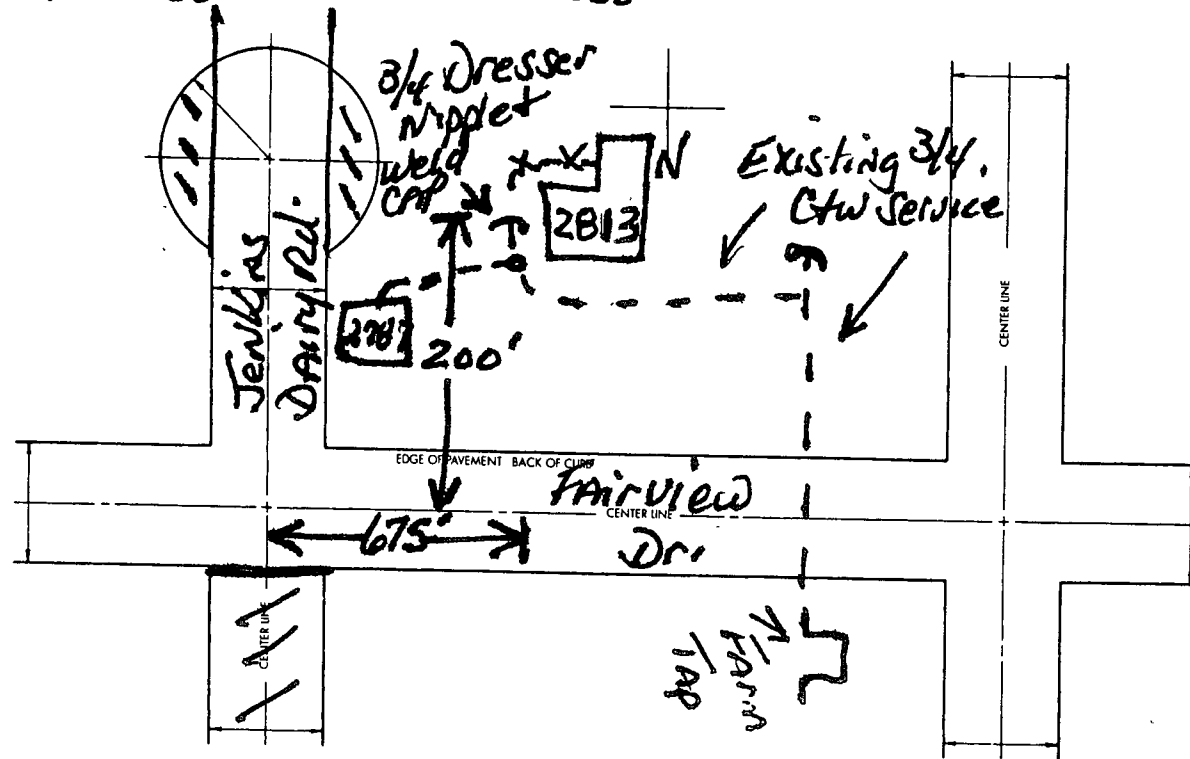 3/4 Dresser
Nipplet
Weld
CAP
N
Existing 3/4.
Ctw Service
2813
Jenkins
DAiry Rd.
200'
CENTER LINE
EDGE OF PAVEMENT BACK OF CURB
FAirview
CENTER LINE
Dr.
675'
CENTER LINE
FArm
TAP